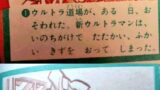 ①ウルトラ道場が、ある 日、お
そわれた。新ウルトラマンは、
いのちがけで たたかい、ふか
い きずを おって しまった。